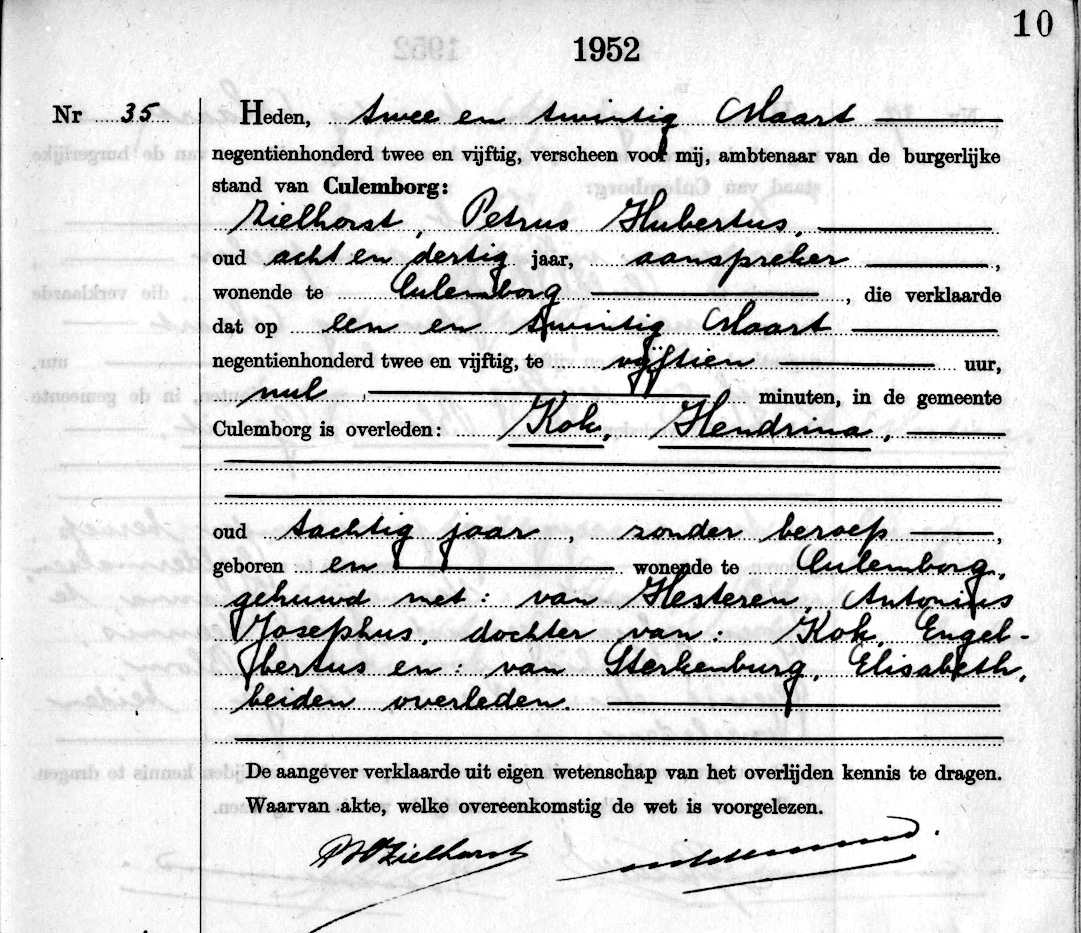 10
1952
Nr 35
Heden, twee en twintig Maart
negentienhonderd twee en vijftig, verscheen voor mij, ambtenaar van de burgerlijke
stand van Culemborg:
Zielhorst, Petrus Hubertus,
oud acht en dertig jaar, aanspreker ,
wonende te Culemborg , die verklaarde
dat op een en twintig Maart
negentienhonderd twee en vijftig, te vijftien uur,
nul minuten, in de gemeente
Culemborg is overleden: Kok, Hendrina,
oud tachtig jaar, zonder beroep ,
geboren en wonende te Culemborg,
gehuwd met: van Hesteren, Antonius
Josephus, dochter van: Kok, Engel-
bertus en: van Sterkenburg, Elisabeth,
beiden overleden.
De aangever verklaarde uit eigen wetenschap van het overlijden kennis te dragen.
Waarvan akte, welke overeenkomstig de wet is voorgelezen.
PHZielhorst